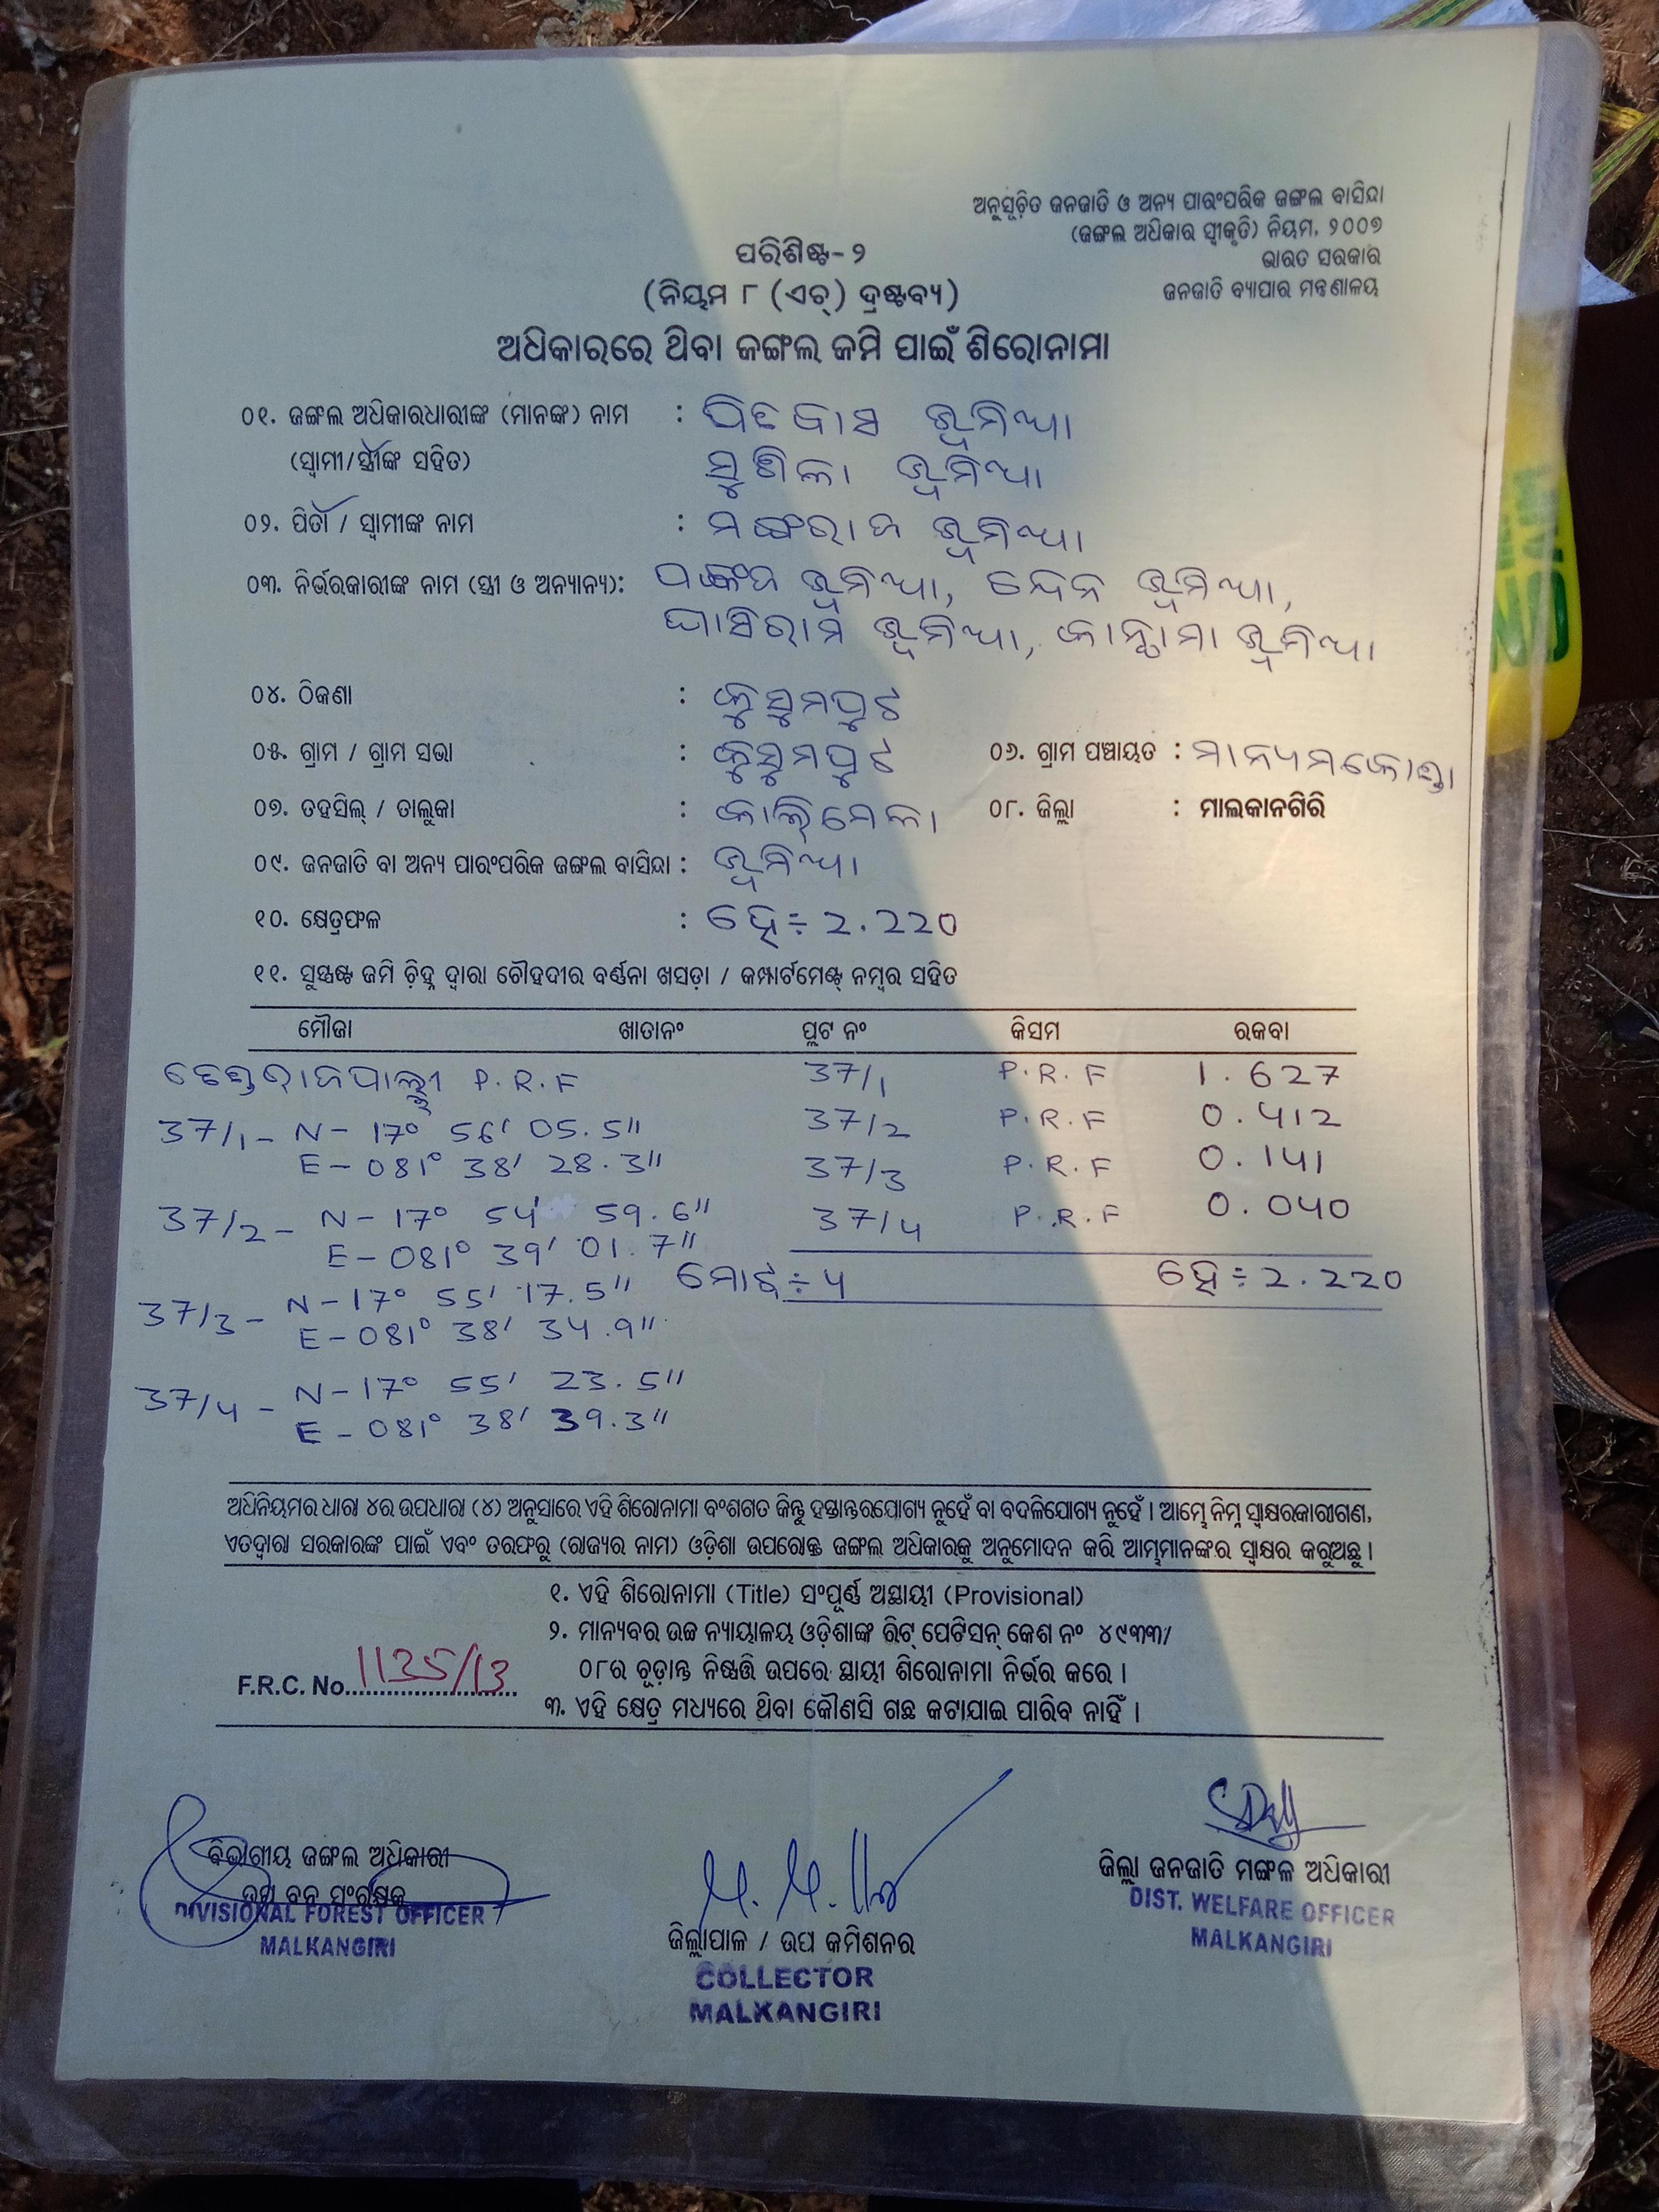 ଅନୁସୂଚିତ ଜନଜାତି ଓ ଅନ୍ୟ ପାରଂପରିକ ଜଙ୍ଗଲ ବାସିନ୍ଦା
(ଜଙ୍ଗଲ ଅଧିକାର ସ୍ୱୀକୃତି) ନିୟମ, ୨୦୦୭
ଭାରତ ସରକାର
ଜନଜାତି ବ୍ୟାପାର ମନ୍ତ୍ରଣାଳୟ
ପରିଶିଷ୍ଟ-୨
(ନିୟମ ୮ (ଏଚ୍) ଦ୍ରଷ୍ଟବ୍ୟ)
ଅଧିକାରରେ ଥିବା ଜଙ୍ଗଲ ଜମି ପାଇଁ ଶିରୋନାମା
୦୧. ଜଙ୍ଗଲ ଅଧିକାରଧାରୀଙ୍କ (ମାନଙ୍କ) ନାମ : ଭୂମିଆ
(ସ୍ୱାମୀ/ସ୍ତ୍ରୀଙ୍କ ସହିତ) ଭୂମିଆ
୦୨. ପିତା / ସ୍ୱାମୀଙ୍କ ନାମ : ଭୂମିଆ
୦୩. ନିର୍ଭରକାରୀଙ୍କ ନାମ (ସ୍ତ୍ରୀ ଓ ଅନ୍ୟାନ୍ୟ): ଭୂମିଆ, ଭୂମିଆ,
ଘାସିରାମ ଭୂମିଆ, ଭୂମିଆ
୦୪. ଠିକଣା : କୁସୁମପୁଟ
୦୫. ଗ୍ରାମ / ଗ୍ରାମ ସଭା : କୁସୁମପୁଟ ୦୬. ଗ୍ରାମ ପଞ୍ଚାୟତ : ମାନ୍ୟମକୋଣ୍ଡା
୦୭. ତହସିଲ୍ / ତାଲୁକା : କାଲିମେଳା ୦୮. ଜିଲ୍ଲା : ମାଲକାନଗିରି
୦୯. ଜନଜାତି ବା ଅନ୍ୟ ପାରଂପରିକ ଜଙ୍ଗଲ ବାସିନ୍ଦା : ଭୂମିଆ
୧୦. କ୍ଷେତ୍ରଫଳ : ହେ÷ 2.220
୧୧. ସୁସ୍ପଷ୍ଟ ଜମି ଚିହ୍ନ ଦ୍ୱାରା ଚୌହଦୀର ବର୍ଣ୍ଣନା ଖସଡ଼ା / କମ୍ପାର୍ଟମେଣ୍ଟ୍ ନମ୍ବର ସହିତ
ମୌଜା ଖାତାନଂ ପ୍ଲଟ ନଂ କିସମ ରକବା
P.R.F 37/1 P.R.F 1.627
37/1 - N - 17° 56' 05.5" 37/2 P.R.F 0.412
E - 081° 38' 28.3" 37/3 P.R.F 0.141
37/2 - N - 17° 54' 59.6" 37/4 P.R.F 0.040
E - 081° 39' 01.7"
ମୋଟ ÷ 4 ହେ ÷ 2.220
37/3 - N - 17° 55' 17.5"
E - 081° 38' 34.9"
37/4 - N - 17° 55' 23.5"
E - 081° 38' 39.3"
ଅଧିନିୟମର ଧାରା ୪ର ଉପଧାରା (୪) ଅନୁସାରେ ଏହି ଶିରୋନାମା ବଂଶଗତ କିନ୍ତୁ ହସ୍ତାନ୍ତରଯୋଗ୍ୟ ନୁହେଁ ବା ବଦଳିଯୋଗ୍ୟ ନୁହେଁ । ଆମ୍ଭେ ନିମ୍ନ ସ୍ୱାକ୍ଷରକାରୀଗଣ,
ଏତଦ୍ଦ୍ୱାରା ସରକାରଙ୍କ ପାଇଁ ଏବଂ ତରଫରୁ (ରାଜ୍ୟର ନାମ) ଓଡ଼ିଶା ଉପରୋକ୍ତ ଜଙ୍ଗଲ ଅଧିକାରକୁ ଅନୁମୋଦନ କରି ଆମ୍ଭମାନଙ୍କର ସ୍ୱାକ୍ଷର କରୁଅଛୁ ।
୧. ଏହି ଶିରୋନାମା (Title) ସଂପୂର୍ଣ୍ଣ ଅସ୍ଥାୟୀ (Provisional)
୨. ମାନ୍ୟବର ଉଚ୍ଚ ନ୍ୟାୟାଳୟ ଓଡ଼ିଶାଙ୍କ ରିଟ୍ ପେଟିସନ୍ କେଶ ନଂ ୪୯୩୩/
୦୮ର ଚୂଡ଼ାନ୍ତ ନିଷ୍ପତ୍ତି ଉପରେ ସ୍ଥାୟୀ ଶିରୋନାମା ନିର୍ଭର କରେ ।
F.R.C. No. 1135/13
୩. ଏହି କ୍ଷେତ୍ର ମଧ୍ୟରେ ଥିବା କୌଣସି ଗଛ କଟାଯାଇ ପାରିବ ନାହିଁ ।
ବିଭାଗୀୟ ଜଙ୍ଗଲ ଅଧିକାରୀ
ଉପ ବନ ସଂରକ୍ଷକ
DIVISIONAL FOREST OFFICER
MALKANGIRI
ଜିଲ୍ଲାପାଳ / ଉପ କମିଶନର
COLLECTOR
MALKANGIRI
ଜିଲ୍ଲା ଜନଜାତି ମଙ୍ଗଳ ଅଧିକାରୀ
DIST. WELFARE OFFICER
MALKANGIRI